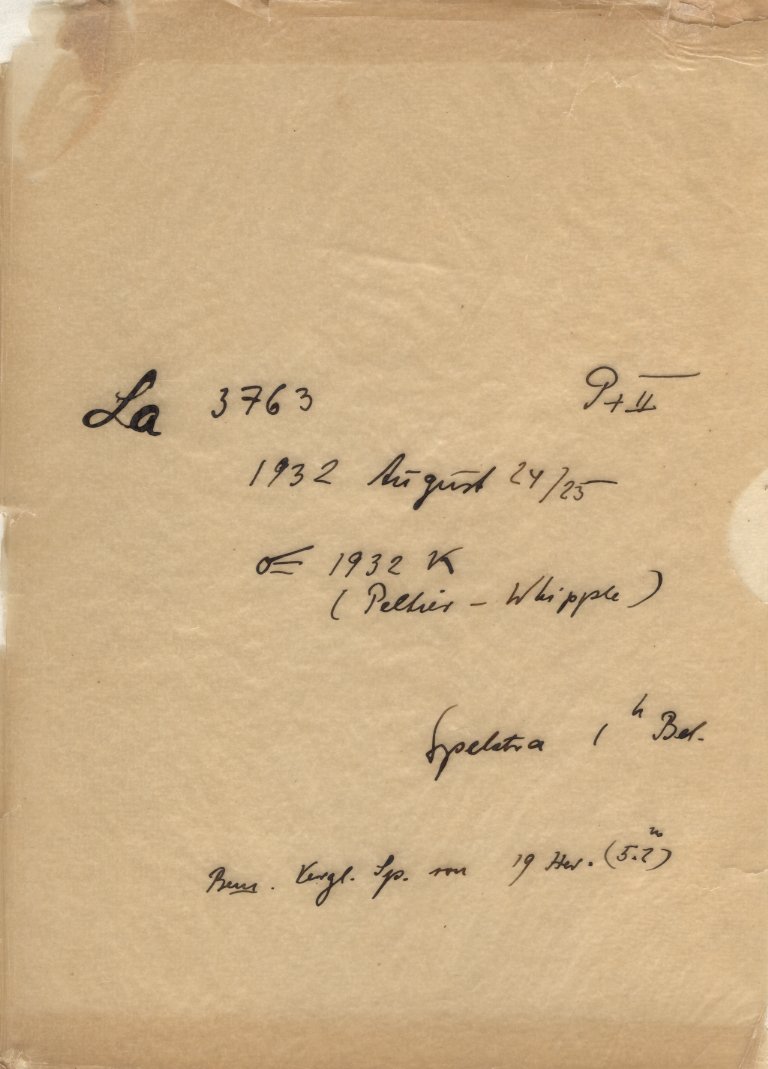 La 3763 P+II
1932 August 24/25
☄ 1932 K
(Peltier - Whipple)
Spektra 1ʰ Bel.
Bem. Vergl. Sp. von 19 Her. (5.2ᵐ)